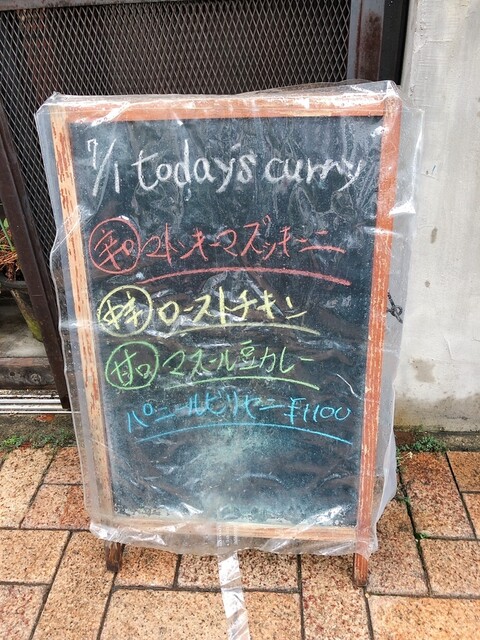 7/1 today's curry
辛口 マトンキーマズッキーニ
中辛 ローストチキン
甘口 マスール豆カレー
パニールビリヤニー ¥1100